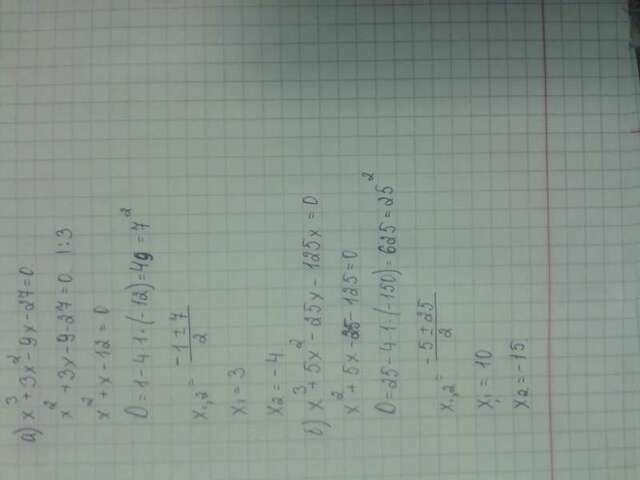 а) x³+3x²-9x-27=0
x²+3x-9-27=0 |:3
x²+x-12=0
D=1-4·1·(-12)=49=7²
x₁,₂= (-1±7)/2
x₁=3
x₂=-4
б) x³+5x²-25x-125x=0
x²+5x-25-125=0
D=25-4·1·(-150)=625=25²
x₁,₂= (-5±25)/2
x₁=10
x₂=-15